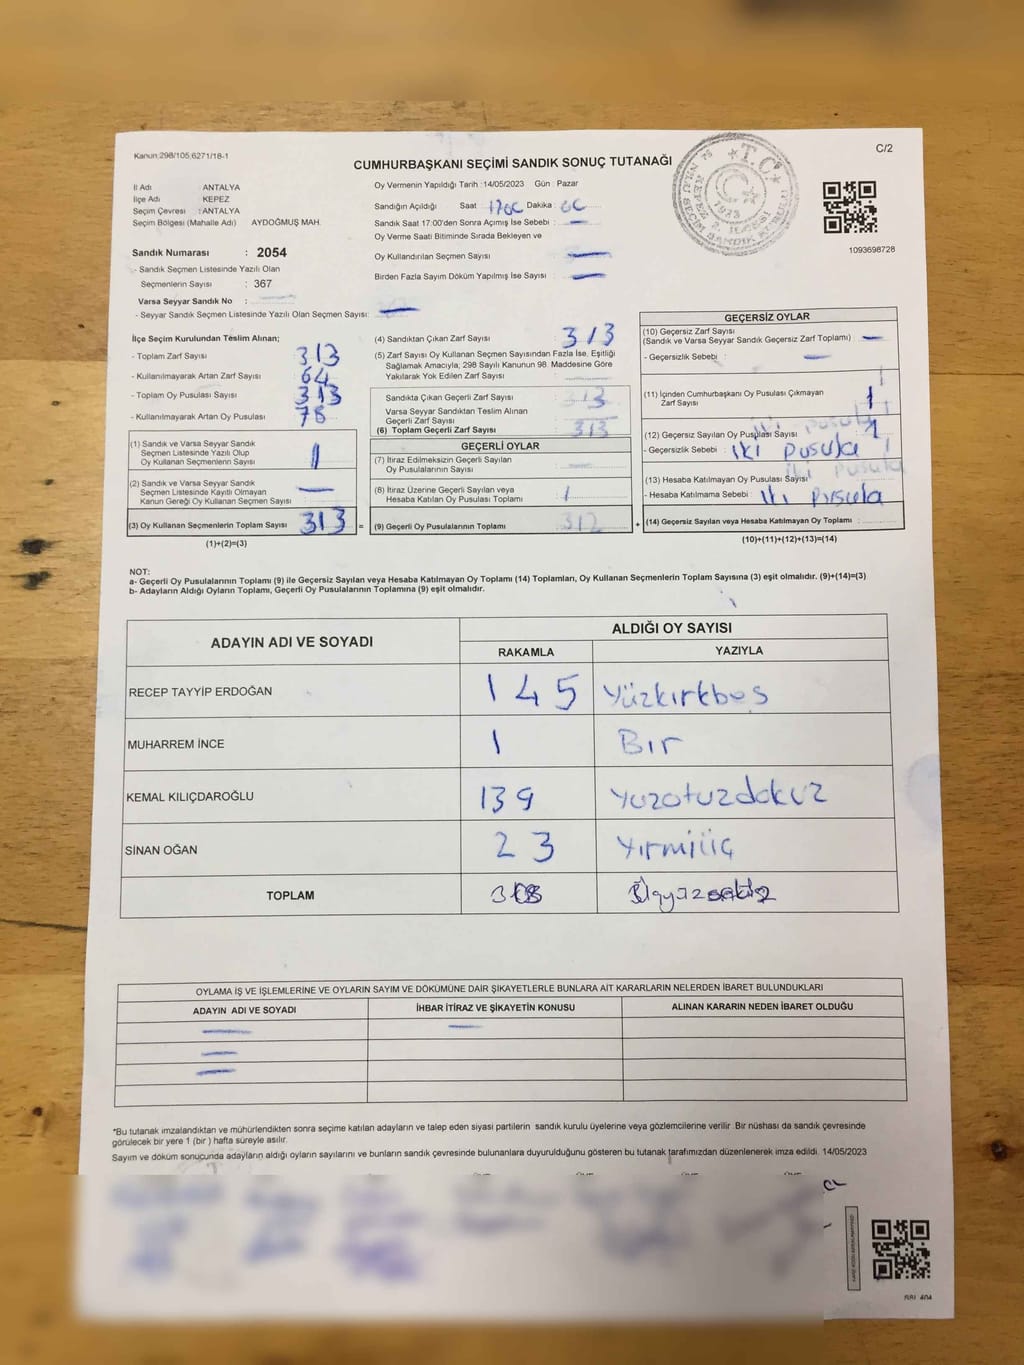 Kanun:298/105,6271/18-1
C/2
CUMHURBAŞKANI SEÇİMİ SANDIK SONUÇ TUTANAĞI
İl Adı : ANTALYA
İlçe Adı : KEPEZ
Seçim Çevresi : ANTALYA
Seçim Bölgesi (Mahalle Adı) AYDOĞMUŞ MAH.
Sandık Numarası : 2054
- Sandık Seçmen Listesinde Yazılı Olan
Seçmenlerin Sayısı : 367
Varsa Seyyar Sandık No :
- Seyyar Sandık Seçmen Listesinde Yazılı Olan Seçmen Sayısı:
Oy Vermenin Yapıldığı Tarih :14/05/2023 Gün : Pazar
Sandığın Açıldığı Saat Dakika
Sandık Saat 17:00'den Sonra Açımış İse Sebebi : —
Oy Verme Saati Bitiminde Sırada Bekleyen ve
Oy Kullandırılan Seçmen Sayısı : —
Birden Fazla Sayım Döküm Yapılmış İse Sayısı : —
T.C.
1093698728
İlçe Seçim Kurulundan Teslim Alınan;
- Toplam Zarf Sayısı : 313
- Kullanılmayarak Artan Zarf Sayısı : 64
- Toplam Oy Pusulası Sayısı : 313
- Kullanılmayarak Artan Oy Pusulası : 78
(1) Sandık ve Varsa Seyyar Sandık
Seçmen Listesinde Yazılı Olup
Oy Kullanan Seçmenlerin Sayısı : 1
(2) Sandık ve Varsa Seyyar Sandık
Seçmen Listesinde Kayıtlı Olmayan
Kanun Gereği Oy Kullanan Seçmen Sayısı : —
(3) Oy Kullanan Seçmenlerin Toplam Sayısı : 313 =
(1)+(2)=(3)
(4) Sandıktan Çıkan Zarf Sayısı : 313
(5) Zarf Sayısı Oy Kullanan Seçmen Sayısından Fazla İse, Eşitliği
Sağlamak Amacıyla; 298 Sayılı Kanunun 98. Maddesine Göre
Yakılarak Yok Edilen Zarf Sayısı :
Sandıkta Çıkan Geçerli Zarf Sayısı : 313
Varsa Seyyar Sandıktan Teslim Alınan
Geçerli Zarf Sayısı :
(6) Toplam Geçerli Zarf Sayısı : 313
GEÇERLİ OYLAR
(7) İtiraz Edilmeksizin Geçerli Sayılan
Oy Pusulalarının Sayısı :
(8) İtiraz Üzerine Geçerli Sayılan veya
Hesaba Katılan Oy Pusulası Toplamı : 1
(9) Geçerli Oy Pusulalarının Toplamı : 312 +
GEÇERSİZ OYLAR
(10) Geçersiz Zarf Sayısı
(Sandık ve Varsa Seyyar Sandık Geçersiz Zarf Toplamı) : —
- Geçersizlik Sebebi : —
(11) İçinden Cumhurbaşkanı Oy Pusulası Çıkmayan
Zarf Sayısı : 1
(12) Geçersiz Sayılan Oy Pusulası Sayısı : 1
- Geçersizlik Sebebi : iki pusula
(13) Hesaba Katılmayan Oy Pusulası Sayısı
- Hesaba Katılmama Sebebi :
(14) Geçersiz Sayılan veya Hesaba Katılmayan Oy Toplamı :
(10)+(11)+(12)+(13)=(14)
NOT:
a- Geçerli Oy Pusulalarının Toplamı (9) ile Geçersiz Sayılan veya Hesaba Katılmayan Oy Toplamı (14) Toplamları, Oy Kullanan Seçmenlerin Toplam Sayısına (3) eşit olmalıdır. (9)+(14)=(3)
b- Adayların Aldığı Oyların Toplamı, Geçerli Oy Pusulalarının Toplamına (9) eşit olmalıdır.
ADAYIN ADI VE SOYADI
ALDIĞI OY SAYISI
RAKAMLA YAZIYLA
RECEP TAYYİP ERDOĞAN 145 Yüzkırkbeş
MUHARREM İNCE 1 Bır
KEMAL KILIÇDAROĞLU 139 Yüzotuzdokuz
SİNAN OĞAN 23 Yırmiüç
TOPLAM 308
OYLAMA İŞ VE İŞLEMLERİNE VE OYLARIN SAYIM VE DÖKÜMÜNE DAİR ŞİKAYETLERLE BUNLARA AİT KARARLARIN NELERDEN İBARET BULUNDUKLARI
ADAYIN ADI VE SOYADI İHBAR İTİRAZ VE ŞİKAYETİN KONUSU ALINAN KARARIN NEDEN İBARET OLDUĞU
*Bu tutanak imzalandıktan ve mühürlendikten sonra seçime katılan adayların ve talep eden siyasi partilerin sandık kurulu üyelerine veya gözlemcilerine verilir. Bir nüshası da sandık çevresinde
görülecek bir yere 1 (bir ) hafta süreyle asılır.
Sayım ve döküm sonucunda adayların aldığı oyların sayılarını ve bunların sandık çevresinde bulunanlara duyurulduğunu gösteren bu tutanak tarafımızdan düzenlenerek imza edildi. 14/05/2023